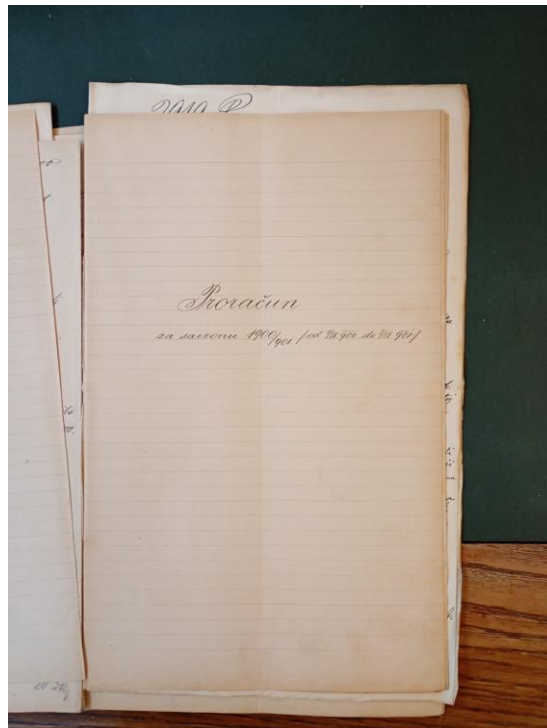 Proračun
za saizonu 1900/901 /od 1/IX 900 do 1/IX 901/